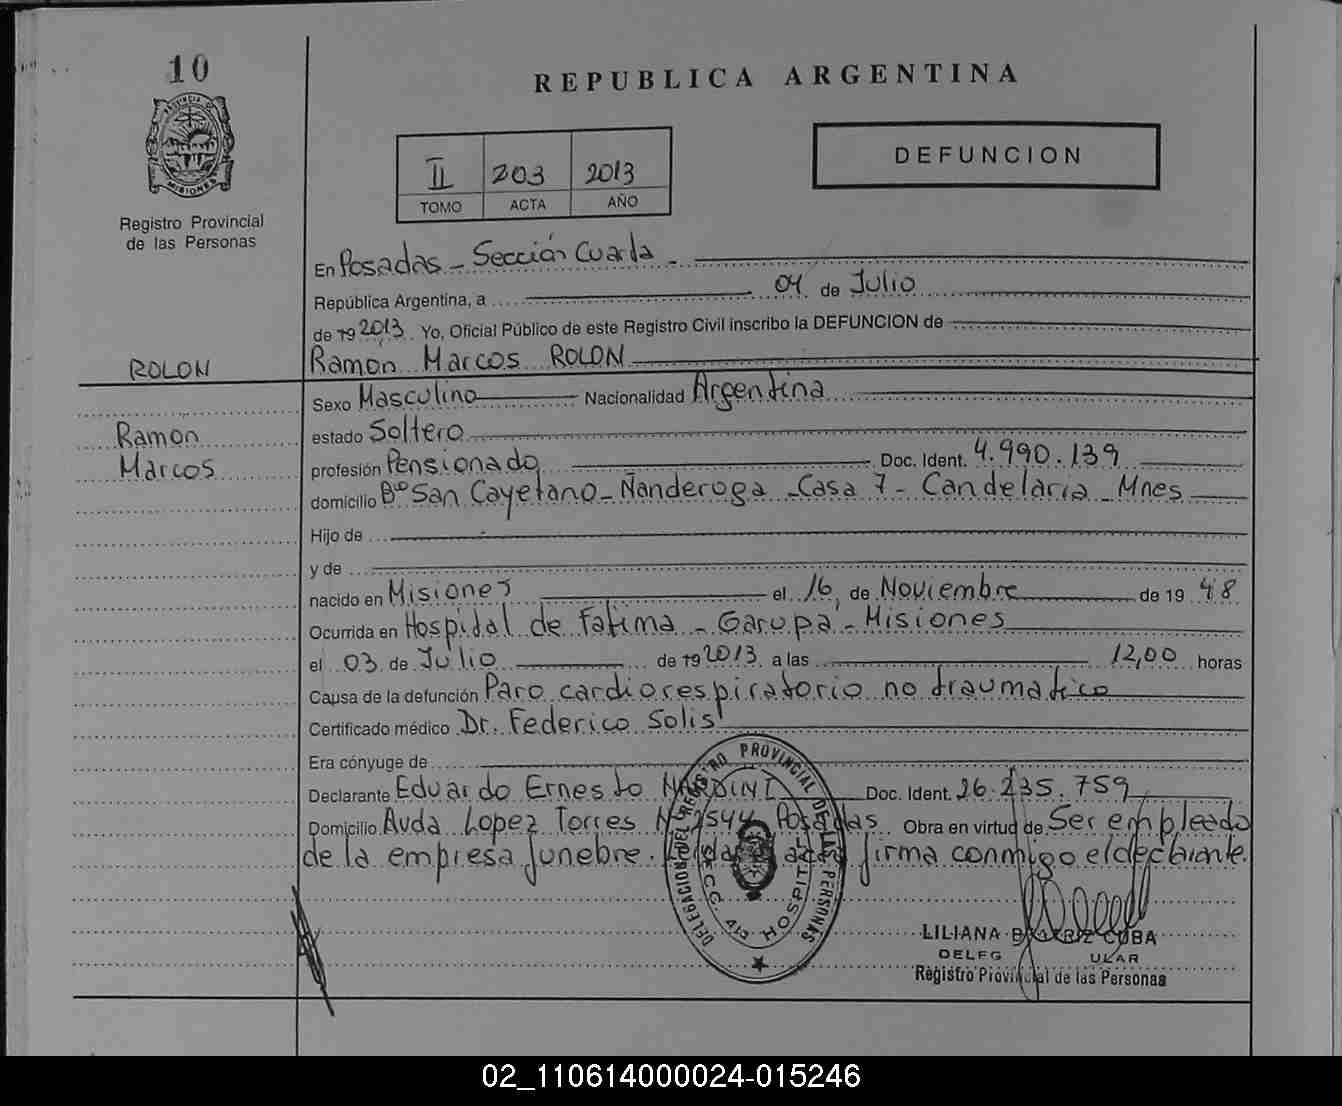 10
PROVINCIA DE
MISIONES
Registro Provincial
de las Personas
REPUBLICA ARGENTINA
II 203 2013
TOMO ACTA AÑO
DEFUNCION
En Posadas - Sección Cuarta -
República Argentina, a 04 de Julio
de 19 2013. Yo, Oficial Público de este Registro Civil inscribo la DEFUNCION de
ROLON
Ramon Marcos ROLON
Sexo Masculino Nacionalidad Argentina
Ramon
estado Soltero
Marcos
profesión Pensionado Doc. Ident. 4.990.139
domicilio Bº San Cayetano - Ñanderoga - Casa 7 - Candelaria - Mnes
Hijo de
y de
nacido en Misiones el 16 de Noviembre de 19 48
Ocurrida en Hospital de Fatima - Garupa - Misiones
el 03 de Julio de 19 2013 a las 12,00 horas
Causa de la defunción Paro cardiorespiratorio no traumatico
Certificado médico Dr. Federico Solis
Era cónyuge de
Declarante Eduardo Ernesto NARDINI Doc. Ident. 26.235.759
Domicilio Avda Lopez Torres Nº 2544 Posadas Obra en virtud de Ser empleado
de la empresa funebre. Leida el acta firma conmigo el declarante.
DELEGACION DEL REGISTRO PROVINCIAL DE LAS PERSONAS
SECC. 4ta HOSPITAL
LILIANA BEATRIZ CUBA
DELEG ULAR
Registro Provincial de las Personas
02_110614000024-015246